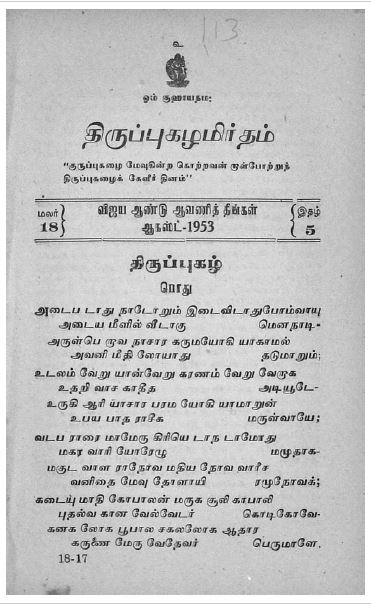 113
உ
ஓம் குஹாயநம:
திருப்புகழமிர்தம்
“குருப்புகழை மேவுகின்ற கொற்றவன் முன்போற்றுந்
திருப்புகழைக் கேளீர் தினம்”
மலர் 18
விஜய ஆண்டு ஆவணித் திங்கள்
ஆகஸ்ட்-1953
இதழ் 5
திருப்புகழ்
பொது
அடைப டாது நாடோறும் இடைவிடாதுபோம்வாயு
அடைய மீளில் வீடாகு மெனநாடி-
அருள்பெ றாவ நாசார கருமயோகி யாகாமல்
அவனி மீதி லோயாது தடுமாறும்;
உடலம் வேறு யான்வேறு கரணம் வேறு வேறாக
உதறி வாச காதீத அடியூடே-
உருகி ஆரி யாசார பரம யோகி யாமாறுன்
உபய பாத ராசீக மருள்வாயே;
வடப ராரை மாமேரு கிரியெ டாந டாமோது
மகர வாரி யோரேழு மமுதாக-
மகுட வாள ராநோவ மதிய நோவ வாரீச
வனிதை மேவு தோளாயி ரமுநோவக்;
கடையு மாதி கோபாலன் மருக சூலி காபாலி
புதல்வ கான வேல்வேடர் கொடிகோவே-
கனக லோக பூபால சகலலோக ஆதார
கருணை மேரு வேதேவர் பெருமாளே.
18-17